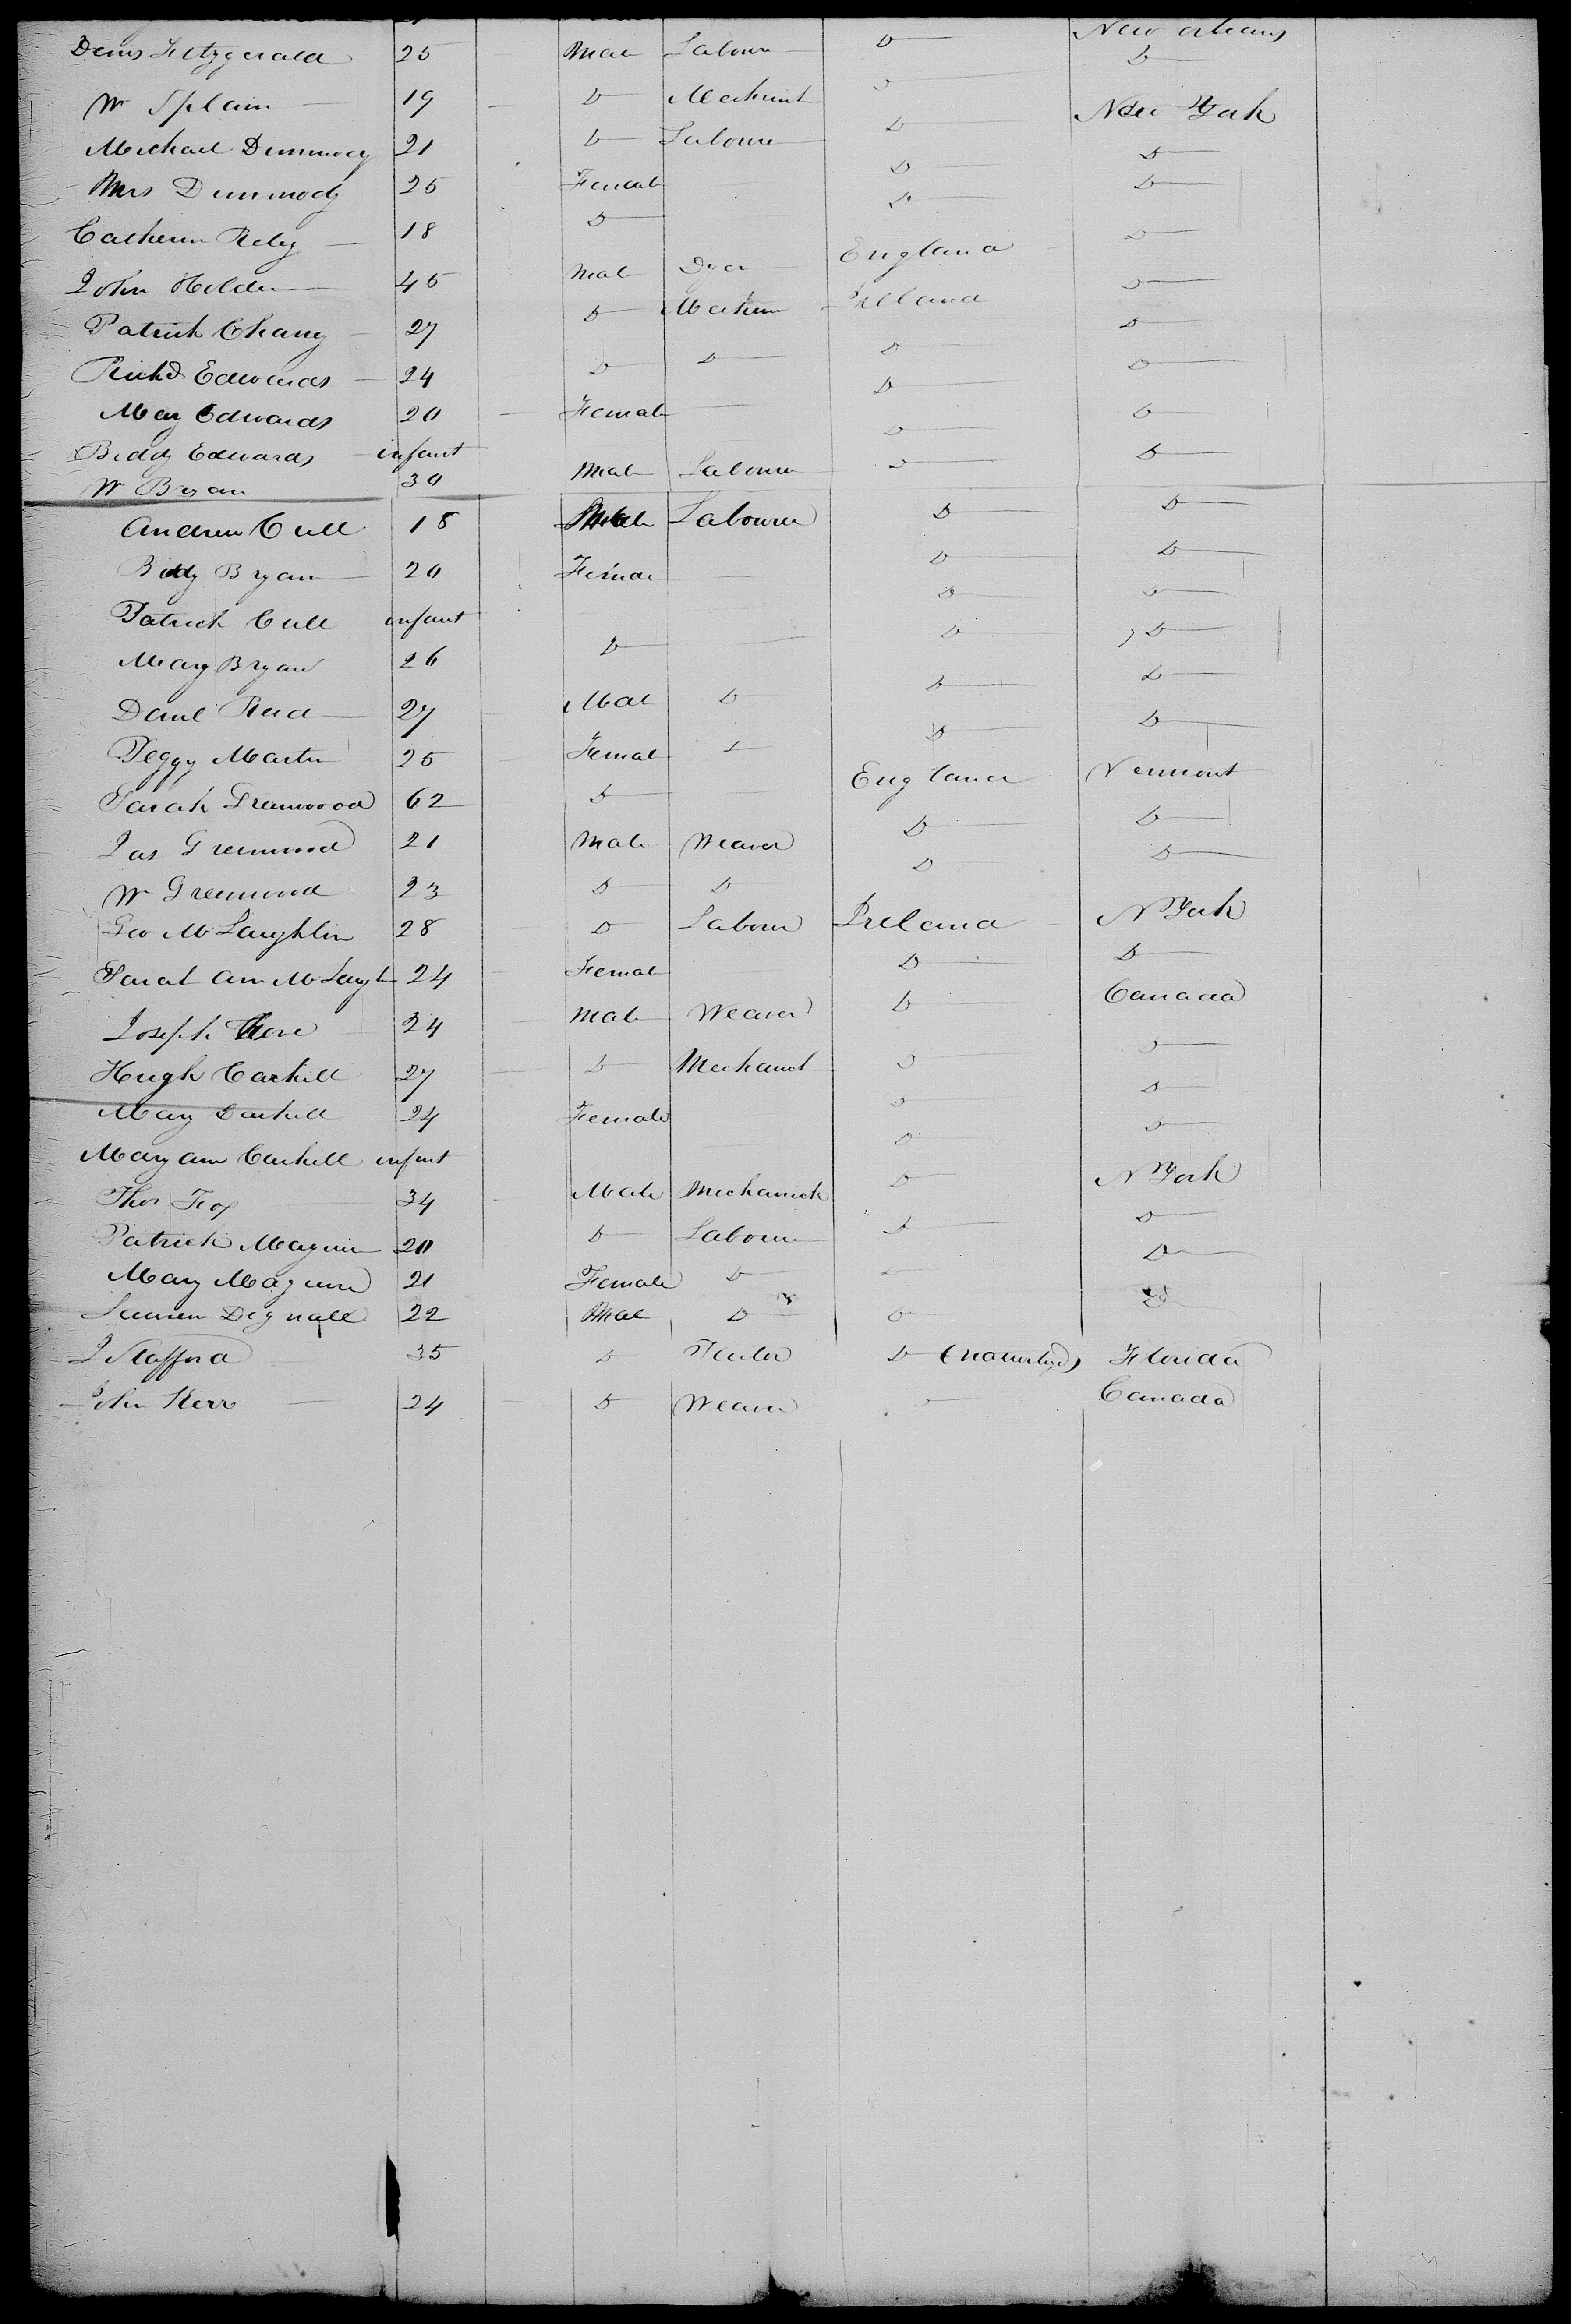 Denis Fitzgerald 25 Male Labour D New Orleans
W Splain 19 D Mechanic D D
Michael Dunmody 21 D Labourer D New York
Mrs Dunmody 25 Female D D
Catherin Reley 18 D D D
John Holden 45 Male Dyer England D
Patrick Chany 27 D Mechan Ireland D
Richd Edwards 24 D D D D
Mary Edwards 20 Female D D
Biddy Edwards infant D D
W Bryan 30 Male Labourer D D
Andrew Cull 18 Male Labourer D D
Biddy Bryan 20 Female D D
Patrick Cull infant D D
Mary Bryan 26 D D D
Danl Read 27 Male D D D
Peggy Martin 25 Female D D
Sarah Greenwood 62 D England Vermont
Jas Greenwood 21 Male Weaver D D
W Greenwood 23 D D D D
Geo McLaughlin 28 D Labour Ireland N York
Sarah Ann McLaugh 24 Female D D
Joseph 24 Male Weaver D Canada
Hugh Carhill 27 D Mechanick D D
Mary Carhill 24 Female D D
Mary Ann Carhill infant D D
Thos Foy 34 Male Mechanick D N York
Patrick Maguire 20 D Labour D D
Mary Maguire 21 Female D D
Dignall 22 Male D D D
J Stafford 35 D D Florida
John Kerr 24 D Weaver D Canada